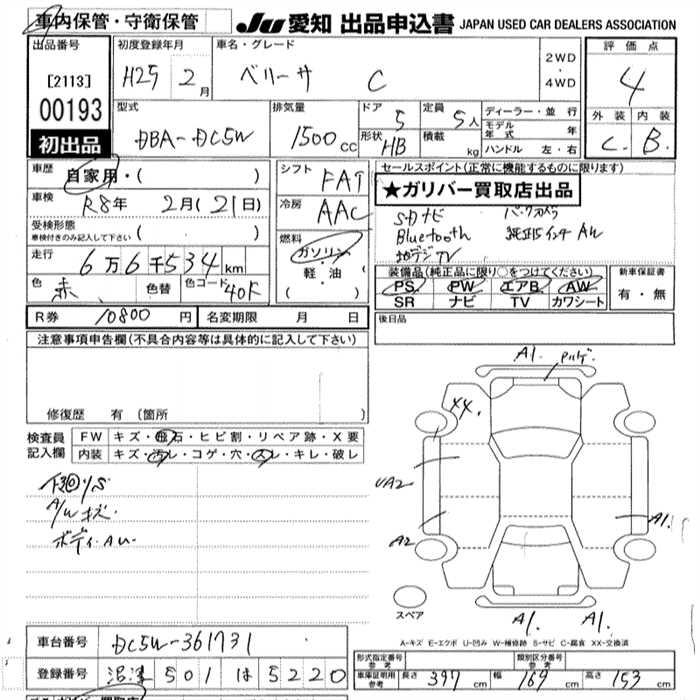 車内保管・守衛保管
JU 愛知 出品申込書 JAPAN USED CAR DEALERS ASSOCIATION
出品番号 初度登録年月 車名・グレード 評価点
[2113] H25 2月 ベリーサ C 2WD・4WD 4
00193 型式 排気量 ドア 5 定員 5人 ディーラー・並行 外装 内装
初出品 DBA-DC5W 1500cc 形状 HB 積載 kg モデル年式 年 C. B.
ハンドル 左・右
車歴 自家用・( ) シフト FAT セールスポイント(正常に機能するものに限ります)
車検 R8年 2月(21日) 冷房 AAC ★ガリバー買取店出品
受検形態 SDナビ バックカメラ
車検付きのみ記入して下さい ( ) Bluetooth AW
走行 6万6千534km 燃料 ガソリン 地デジTV
軽・油 装備品(純正品に限り○をつけてください) 新車保証書
色 赤 色替 色コード 40F ( ) PS PW エアB AW 有・無
SR ナビ TV カワシート
R券 10800円 名変期限 月 日 後日品
注意事項申告欄(不具合内容等は具体的に記入して下さい)
修復歴 有 (箇所
検査員記入欄 FW キズ・飛石・ヒビ割・リペア跡・X要
内装 キズ・汚レ・コゲ・穴・スレ・キレ・破レ
下回りS
A/Wキズ.
ボディAU.
A1.
XX.
UA2
A2 A1.
スペア
A1. A1.
A-キズ E-エクボ U-凹み W-補修跡 S-サビ C-腐食 XX-交換済
車台番号 DC5W-361731
形式指定番号 参考 類別区分番号 参考
登録番号 沼津 501 は 5220 車庫証明用参考 長さ 397 幅 169 高さ 153